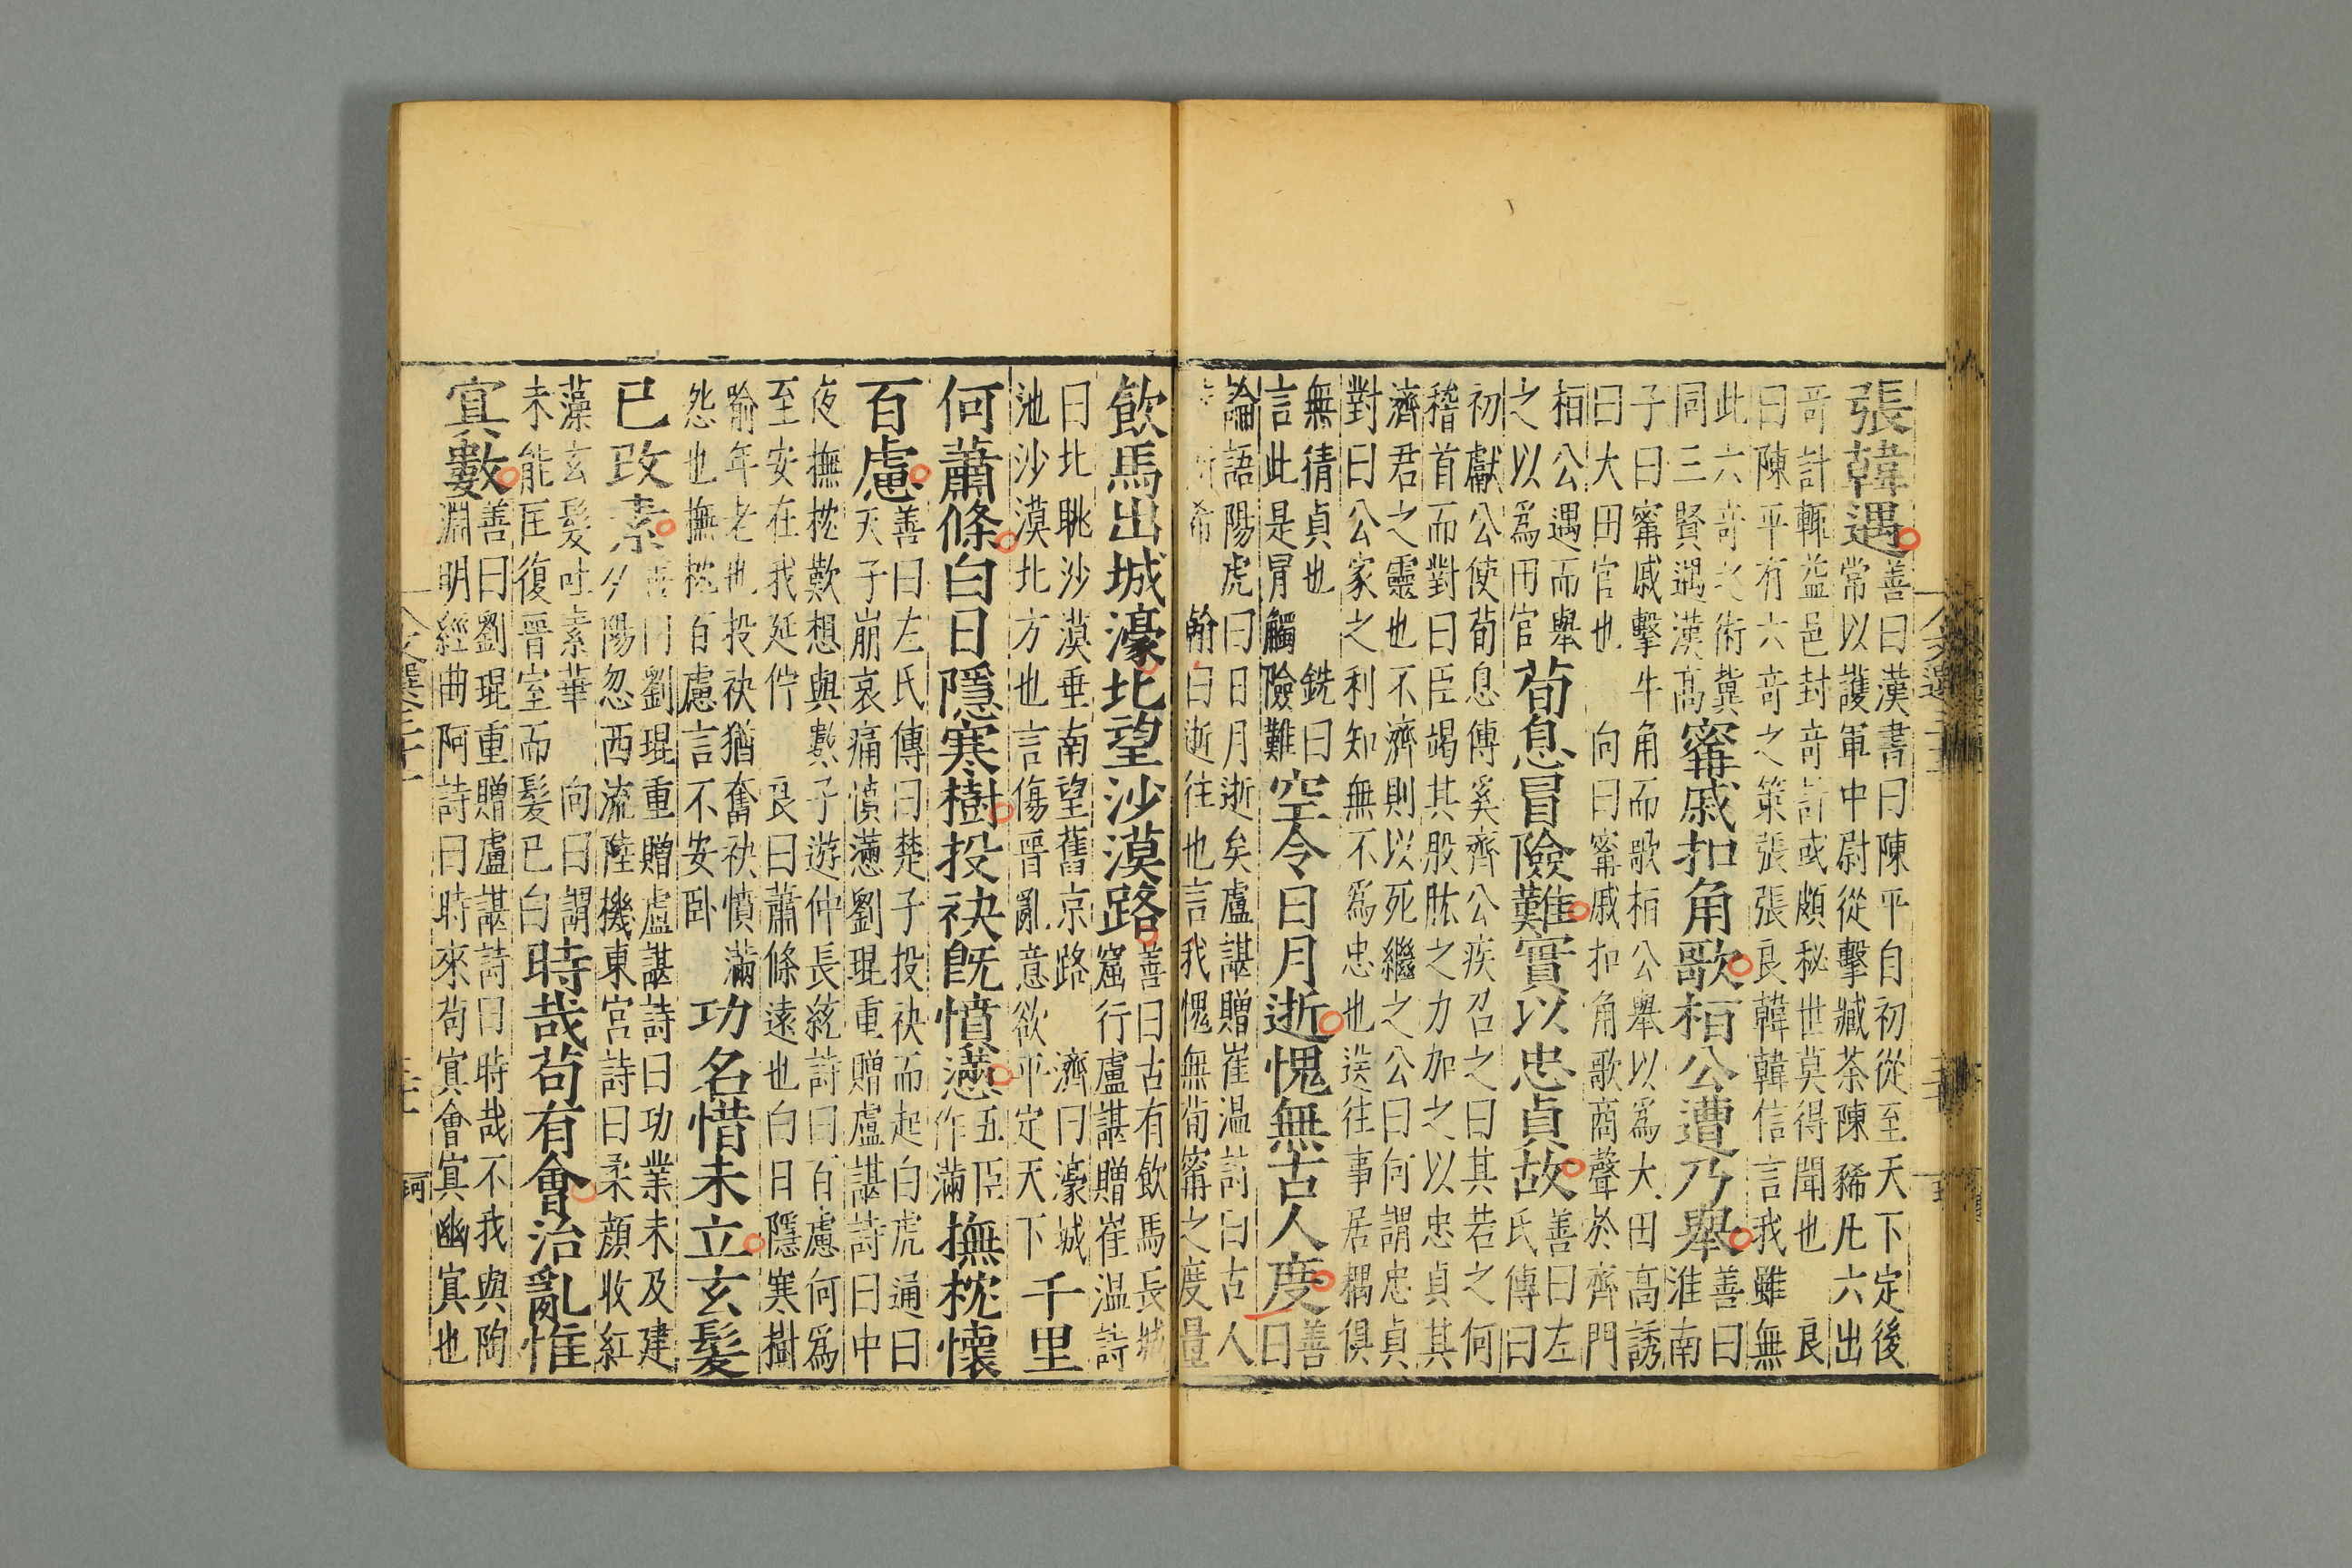 張韓遇善曰漢書曰陳平自初從至天下定後
常以護軍中尉從擊臧荼陳豨凡六出
奇計輒益邑封奇計或頗秘世莫得聞也　良
曰陳平有六奇之策張張良韓韓信言我雖無
此六奇之術冀
同三賢遇漢高
甯戚扣角歌桓公遭乃舉善曰
淮南
子曰甯戚擊牛角而歌桓公舉以爲大田高誘
曰大田官也　向曰甯戚扣角歌商聲於齊門
桓公遇而舉
之以爲田官
荀息冒險難實以忠貞故善曰左
氏傳曰
初獻公使荀息傅奚齊公疾召之曰其若之何
稽首而對曰臣竭其股肱之力加之以忠貞其
濟君之靈也不濟則以死繼之公曰何謂忠貞
對曰公家之利知無不爲忠也送往事居耦俱
無猜貞也　銑曰
言此是冐觸險難
空令日月逝愧無古人度善
曰
論語陽虎曰日月逝矣盧諶贈崔温詩曰古人
希　翰曰逝往也言我愧無荀甯之度量
飲馬出城濠北望沙漠路善曰古有飲馬長城
窟行盧諶贈崔温詩
曰北眺沙漠垂南望舊京路　濟曰濠城
池沙漠北方也言傷晉亂意欲平定天下
千里
何蕭條白日隱寒樹投袂既憤懣五臣
作滿
撫枕懷
百慮善曰左氏傳曰楚子投袂而起白虎通曰
天子崩哀痛憤懣劉琨重贈盧諶詩曰中
夜撫枕歎想與數子游仲長統詩曰百慮何爲
至安在我延佇　良曰蕭條遠也白日隱寒樹
喻年老也投袂猶奮袂憤滿
怨也撫枕百慮言不安卧
功名惜未立玄髮
已改素善曰劉琨重贈盧諶詩曰功業未及建
夕陽忽西流陸機東宮詩曰柔顔收紅
藻玄髮吐素華　向曰謂
未能匡復晉室而髮已白
時哉苟有會治亂惟
寘數善曰劉琨重贈盧諶詩曰時哉不我與陶
淵明經曲阿詩曰時來苟寘會寘幽寘也
文選卷三十一
珂